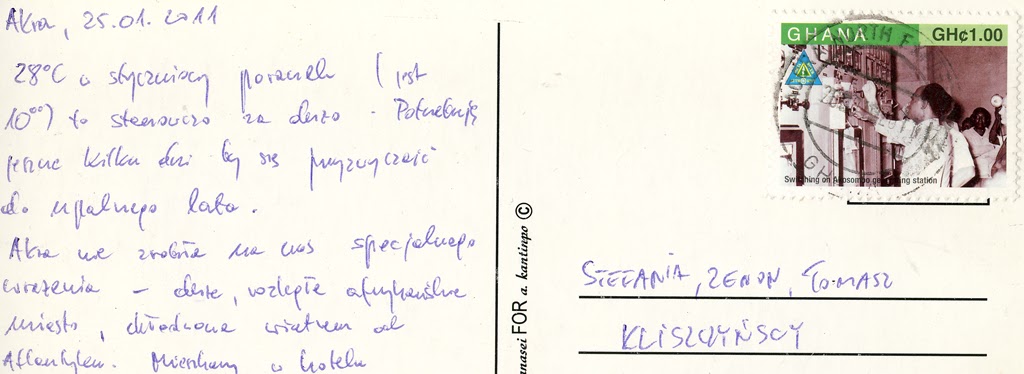 Akra, 25.01.2011
28°C w styczniowy poranek (jest
10⁰⁰) to stanowczo za dużo. Potrzebuję
jeszcze kilku dni by się przyzwyczaić
do upalnego lata.
Akra nie zrobiła na nas specjalnego
wrażenia – duże, rozległe afrykańskie
miasto, chłodzone wiatrem od
Atlantyku. Mieszkamy w hotelu
GHANA GH¢1.00
Switching on Akosombo generating station
nanasei FOR a. kantinpo ©
STEFANIA, ZENON, TOMASZ
KLISZCZYŃSCY